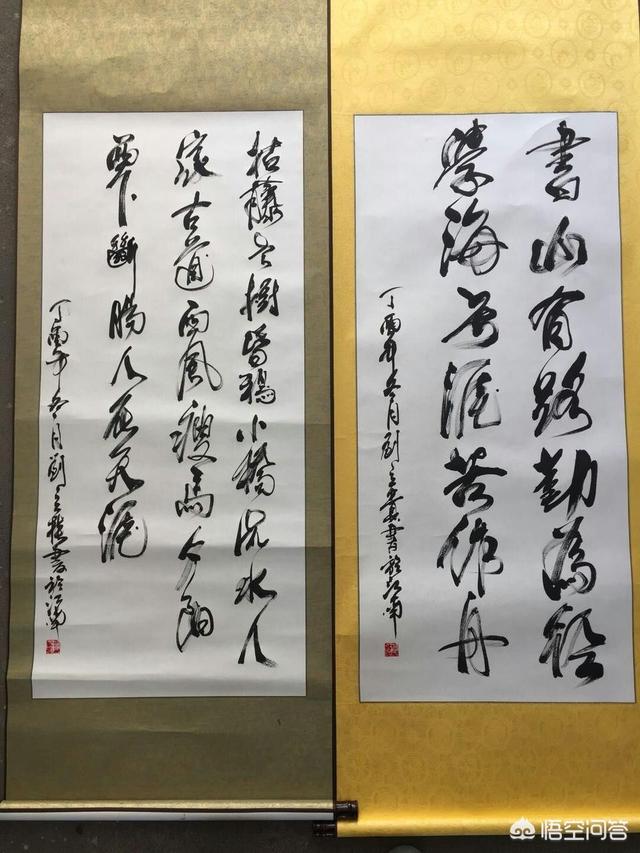 書山有路勤為徑
學海无涯苦作舟
丁酉年冬月劉立書於江南
枯藤老樹昏鴉小橋流水人
家古道西風瘦馬夕陽
西下斷腸人在天涯
丁酉年冬月劉立書於江南
悟空问答